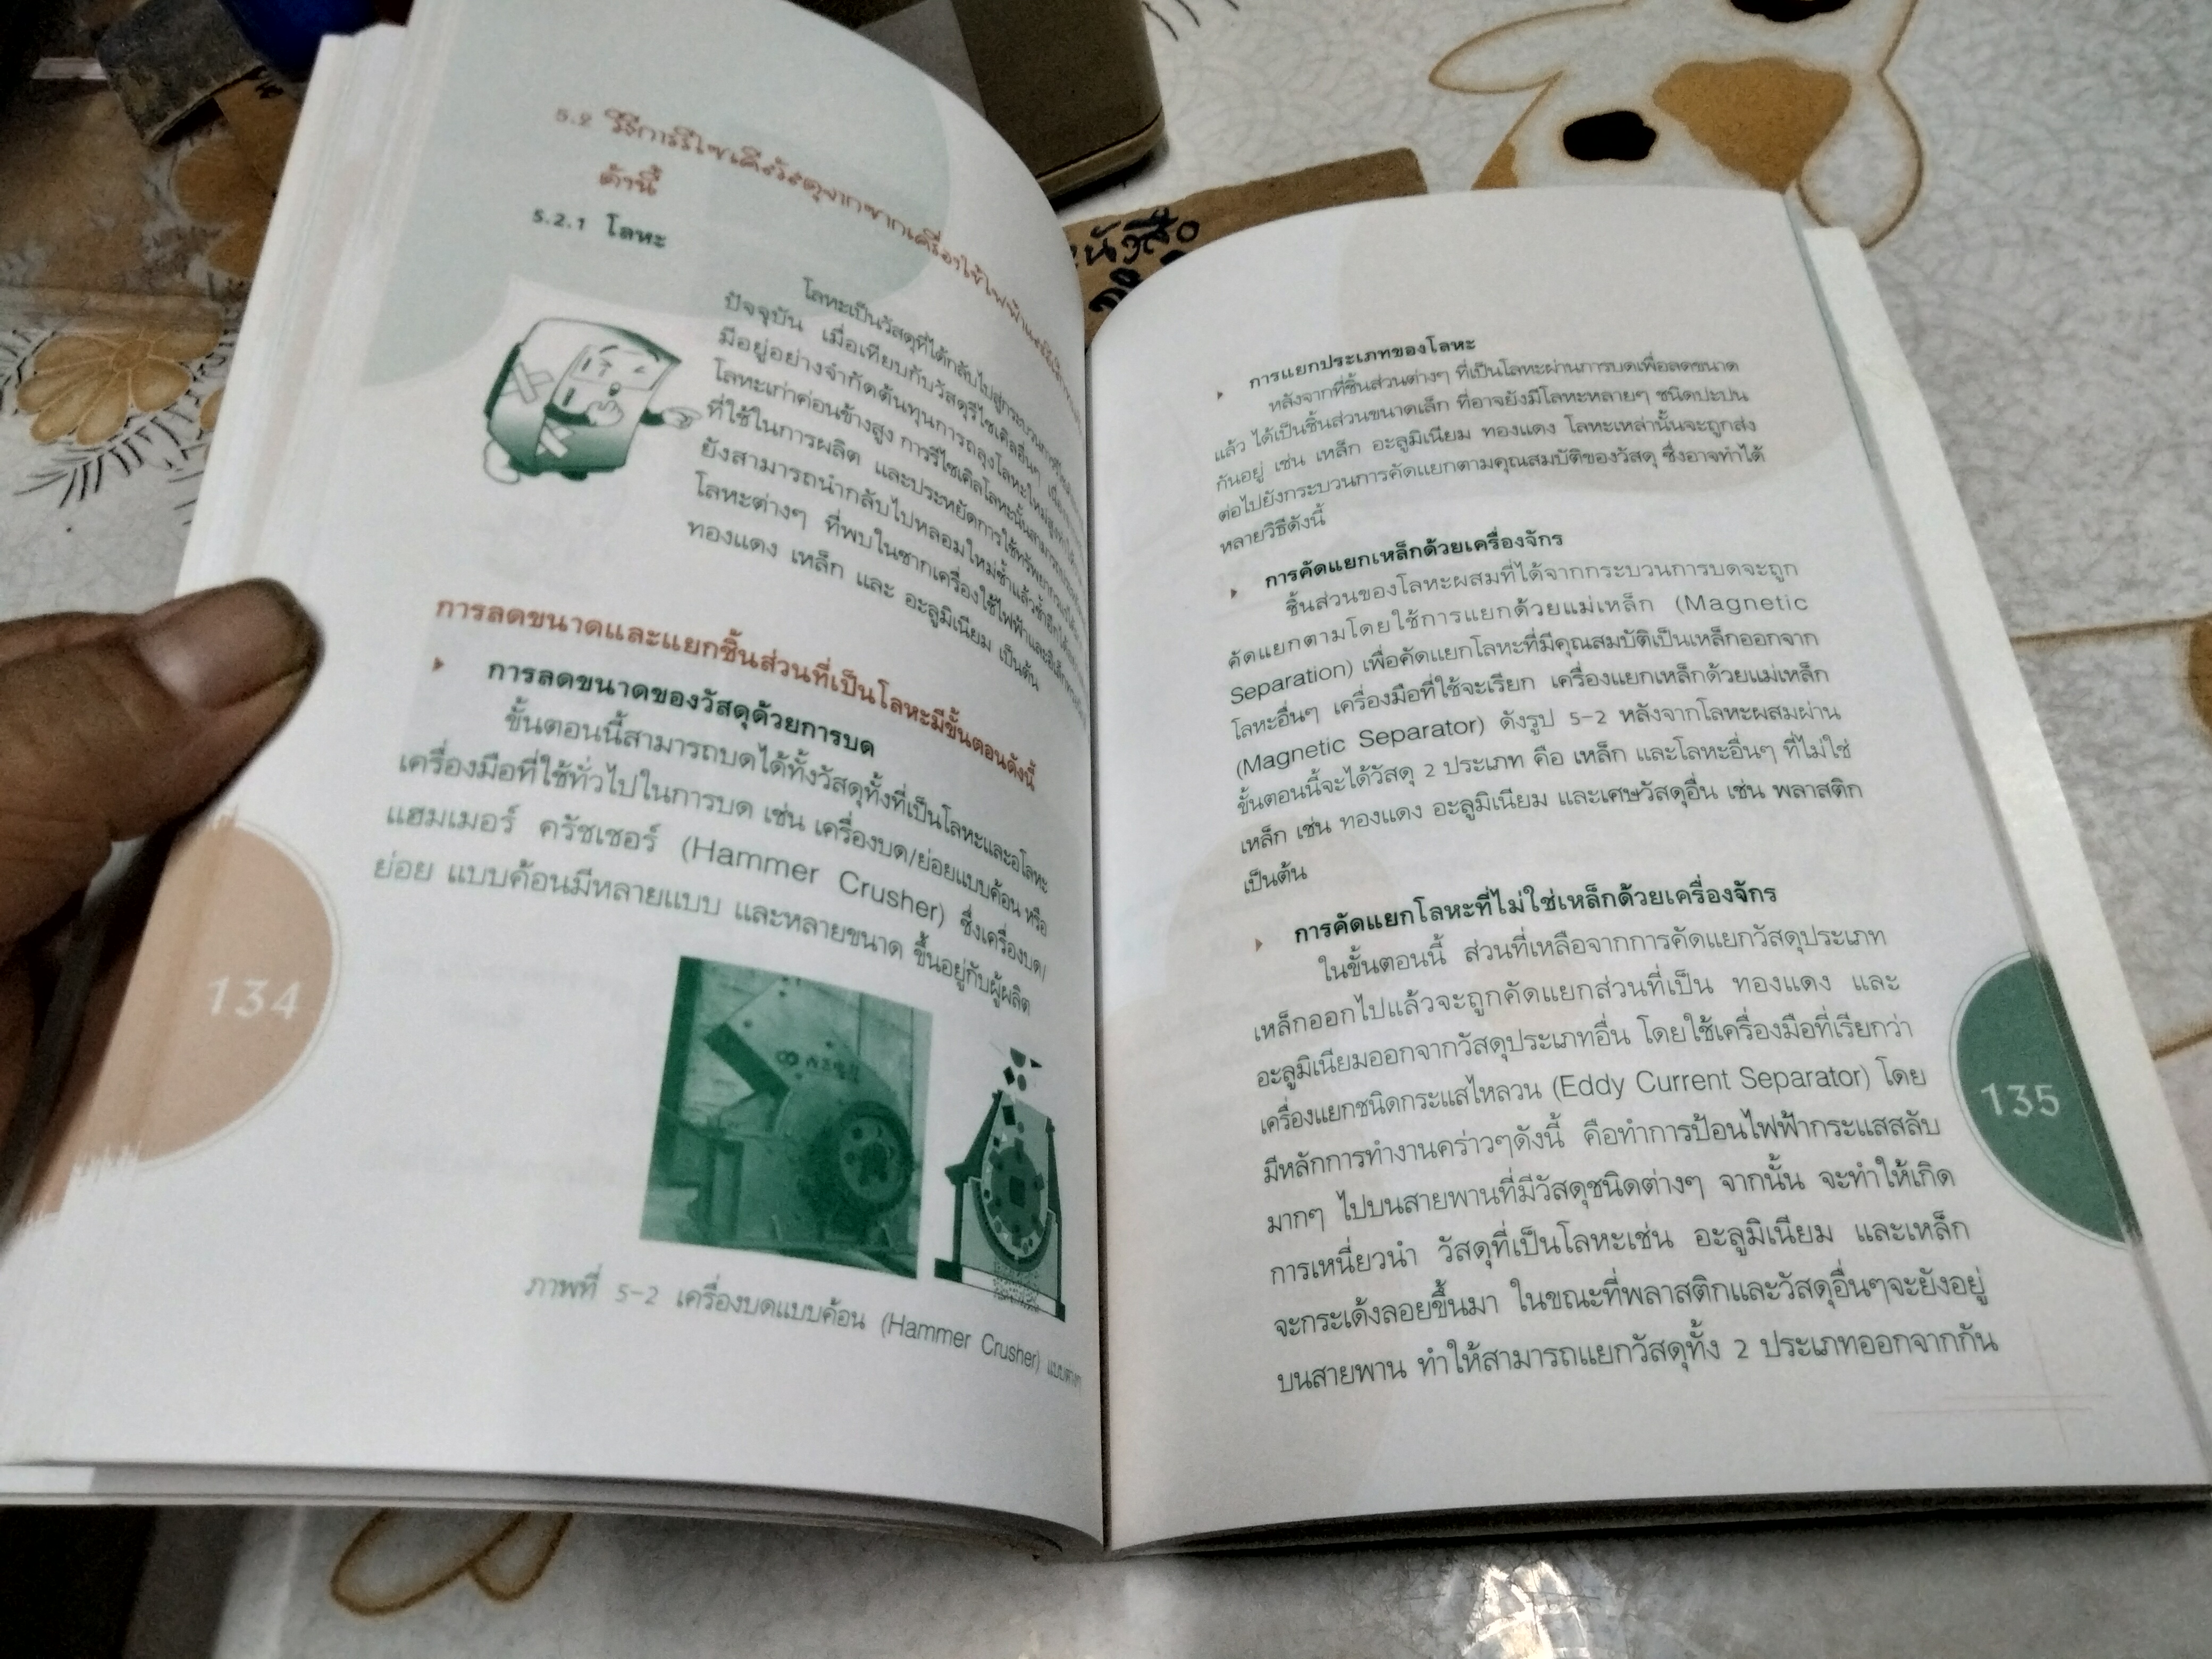 5.2 วิธีการรีไซเคิลวัสดุจากซากเครื่องใช้ไฟฟ้าและ
ดังนี้
5.2.1 โลหะ
โลหะเป็นวัสดุที่ได้กลับไปสู่กระบวนการรีไซเคิล
ปัจจุบัน เมื่อเทียบกับวัสดุรีไซเคิลอื่นๆ
มีอยู่อย่างจำกัดต้นทุนการถลุงโลหะใหม่สูง
โลหะเก่าค่อนข้างสูง การรีไซเคิลโลหะนั้นสามารถ
ที่ใช้ในการผลิต และประหยัดการใช้ทรัพยากร
ยังสามารถนำกลับไปหลอมใหม่ซ้ำแล้วซ้ำอีกได้
โลหะต่างๆ ที่พบในซากเครื่องใช้ไฟฟ้าและ
ทองแดง เหล็ก และ อะลูมิเนียม เป็นต้น
การลดขนาดและแยกชิ้นส่วนที่เป็นโลหะมีขั้นตอนดังนี้
การลดขนาดของวัสดุด้วยการบด
ขั้นตอนนี้สามารถบดได้ทั้งวัสดุทั้งที่เป็นโลหะและอโลหะ
เครื่องมือที่ใช้ทั่วไปในการบด เช่น เครื่องบด/ย่อยแบบค้อน หรือ
แฮมเมอร์ ครัชเชอร์ (Hammer Crusher) ซึ่งเครื่องบด/
ย่อย แบบค้อนมีหลายแบบ และหลายขนาด ขึ้นอยู่กับผู้ผลิต
ภาพที่ 5-2 เครื่องบดแบบค้อน (Hammer Crusher) แบบต่างๆ
134
หนังสือ
การแยกประเภทของโลหะ
หลังจากที่ชิ้นส่วนต่างๆ ที่เป็นโลหะผ่านการบดเพื่อลดขนาด
แล้ว ได้เป็นชิ้นส่วนขนาดเล็ก ที่อาจยังมีโลหะหลายๆ ชนิดปะปน
กันอยู่ เช่น เหล็ก อะลูมิเนียม ทองแดง โลหะเหล่านั้นจะถูกส่ง
ต่อไปยังกระบวนการคัดแยกตามคุณสมบัติของวัสดุ ซึ่งอาจทำได้
หลายวิธีดังนี้
การคัดแยกเหล็กด้วยเครื่องจักร
ชิ้นส่วนของโลหะผสมที่ได้จากกระบวนการบดจะถูก
คัดแยกตามโดยใช้การแยกด้วยแม่เหล็ก (Magnetic
Separation) เพื่อคัดแยกโลหะที่มีคุณสมบัติเป็นเหล็กออกจาก
โลหะอื่นๆ เครื่องมือที่ใช้จะเรียก เครื่องแยกเหล็กด้วยแม่เหล็ก
(Magnetic Separator) ดังรูป 5-2 หลังจากโลหะผสมผ่าน
ขั้นตอนนี้จะได้วัสดุ 2 ประเภท คือ เหล็ก และโลหะอื่นๆ ที่ไม่ใช่
เหล็ก เช่น ทองแดง อะลูมิเนียม และเศษวัสดุอื่น เช่น พลาสติก
เป็นต้น
การคัดแยกโลหะที่ไม่ใช่เหล็กด้วยเครื่องจักร
ในขั้นตอนนี้ ส่วนที่เหลือจากการคัดแยกวัสดุประเภท
เหล็กออกไปแล้วจะถูกคัดแยกส่วนที่เป็น ทองแดง และ
อะลูมิเนียมออกจากวัสดุประเภทอื่น โดยใช้เครื่องมือที่เรียกว่า
เครื่องแยกชนิดกระแสไหลวน (Eddy Current Separator) โดย
มีหลักการทำงานคร่าวๆดังนี้ คือทำการป้อนไฟฟ้ากระแสสลับ
มากๆ ไปบนสายพานที่มีวัสดุชนิดต่างๆ จากนั้น จะทำให้เกิด
การเหนี่ยวนำ วัสดุที่เป็นโลหะเช่น อะลูมิเนียม และเหล็ก
จะกระเด้งลอยขึ้นมา ในขณะที่พลาสติกและวัสดุอื่นๆจะยังอยู่
บนสายพาน ทำให้สามารถแยกวัสดุทั้ง 2 ประเภทออกจากกัน
135